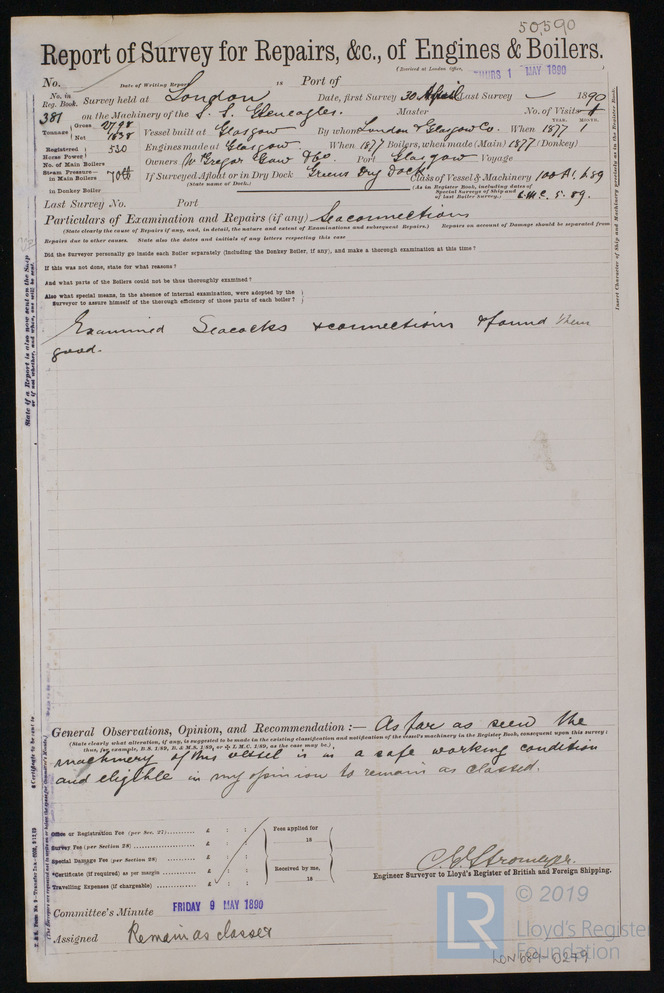 50,590
Report of Survey for Repairs, &c., of Engines & Boilers.
(Received at London Office,
THURS 1 MAY 1890
No. Date of Writing Report 18 Port of
No. in Reg. Book. Survey held at London Date, first Survey 30 April Last Survey 1890
381 on the Machinery of the S. S. Gleneagles. Master No. of Visits 1
Tonnage Gross 2798 Net 1838 Vessel built at Glasgow By whom London & Glasgow Co. When 1877 YEAR. MONTH. 1
Registered Horse Power 530 Engines made at Glasgow. When 1877 Boilers, when made (Main) 1877 (Donkey)
No. of Main Boilers Owners McGregor Gow & Co. Port Glasgow Voyage
Steam Pressure— in Main Boilers 70 lb If Surveyed Afloat or in Dry Dock Greens Dry Dock Class of Vessel & Machinery 100 A1
(State name of Dock.) (As in Register Book, including dates of Special Surveys of Ship and of last Boiler Survey.) LMC. 5. 89.
in Donkey Boiler
Last Survey No. Port
Particulars of Examination and Repairs (if any) Seaconnections
(State clearly the cause of Repairs if any, and, in detail, the nature and extent of Examinations and subsequent Repairs.) Repairs on account of Damage should be separated from
Repairs due to other causes. State also the dates and initials of any letters respecting this case
Did the Surveyor personally go inside each Boiler separately (including the Donkey Boiler, if any), and make a thorough examination at this time?
If this was not done, state for what reasons?
And what parts of the Boilers could not be thus thoroughly examined?
Also what special means, in the absence of internal examination, were adopted by the
Surveyor to assure himself of the thorough efficiency of those parts of each boiler?
Examined Seacocks & connections & found them
good.
State if a Report is also now sent on the Ship
or if not whether, and when, one will be sent.
Insert Character of Ship and Machinery precisely as in the Register Book.
General Observations, Opinion, and Recommendation :— As far as seen the
(State clearly what alteration, if any, is suggested to be made in the existing classification and notification of the vessel's machinery in the Register Book, consequent upon this survey;
thus, for example, B.S. 1/89, B. & M.S. 1/89, or ✠ L.M.C. 1/89, as the case may be.)
machinery of this vessel is in a safe working condition
and eligible in my opinion to remain as classed.
Office or Registration Fee (per Sec. 27) £ : :
Survey Fee (per Section 28) £ : :
Special Damage Fee (per Section 28) £ : :
*Certificate (if required) as per margin £ : :
Travelling Expenses (if chargeable) £ : :
Fees applied for
18
Received by me,
18
C. E. Stromeyer.
Engineer Surveyor to Lloyd's Register of British and Foreign Shipping.
Committee's Minute FRIDAY 9 MAY 1890
Assigned Remain as classed
LR
© 2019
Lloyd's Register
Foundation
LDN689-0279